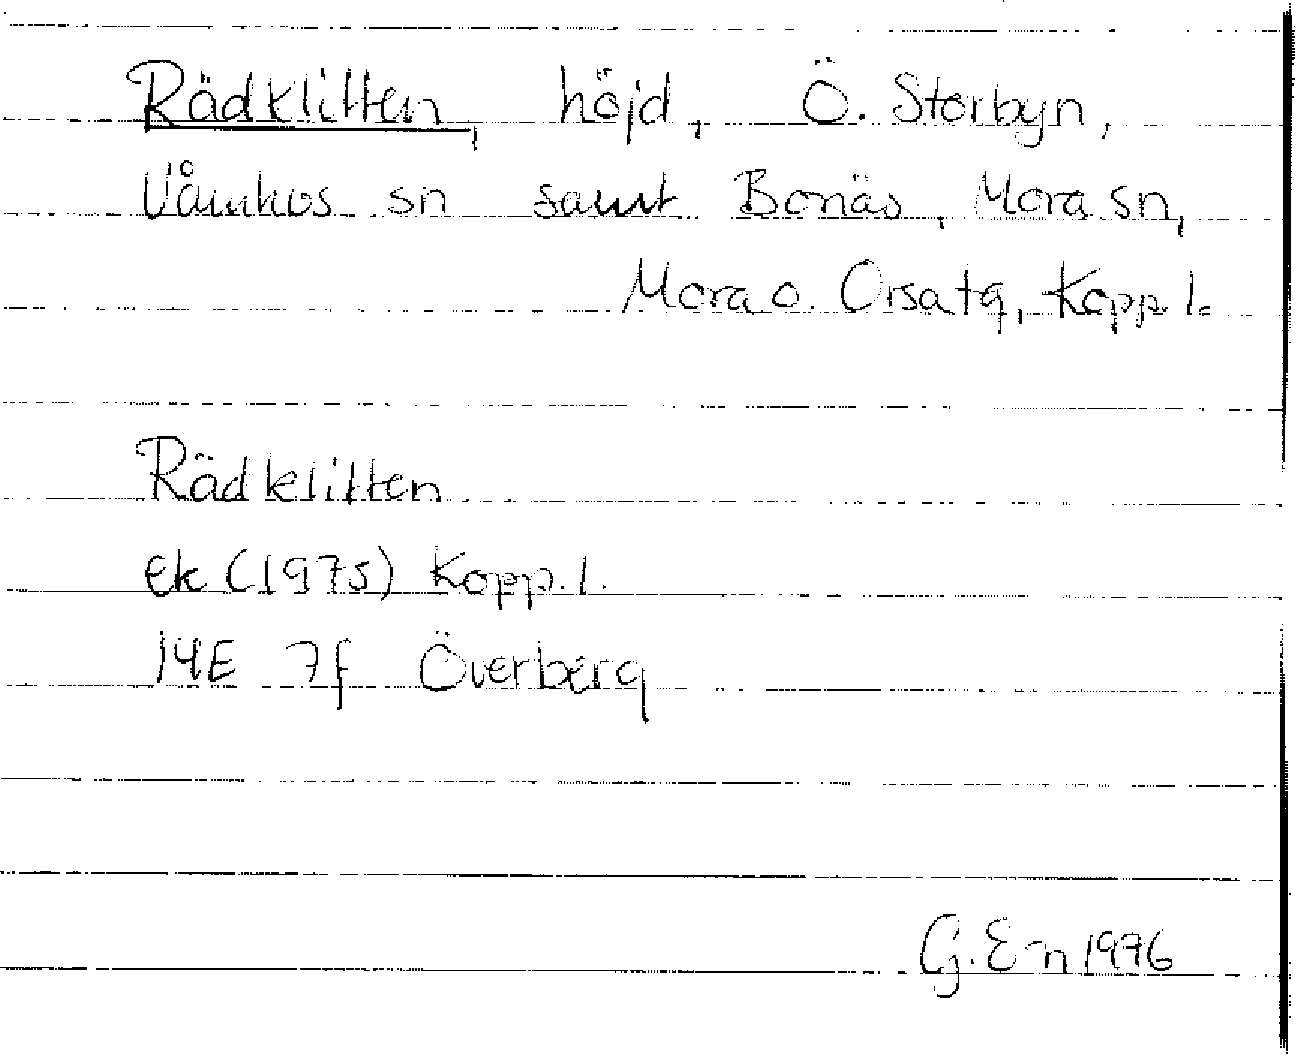 Rädklitten, höjd, Ö. Storbyn,
Våmhus sn samt Bonäs, Mora sn,
Mora o. Orsa tg, Kopp. l.
Rädklitten
Ek (1975) Kopp. l.
14E 7f Överberg
G. E-n 1996